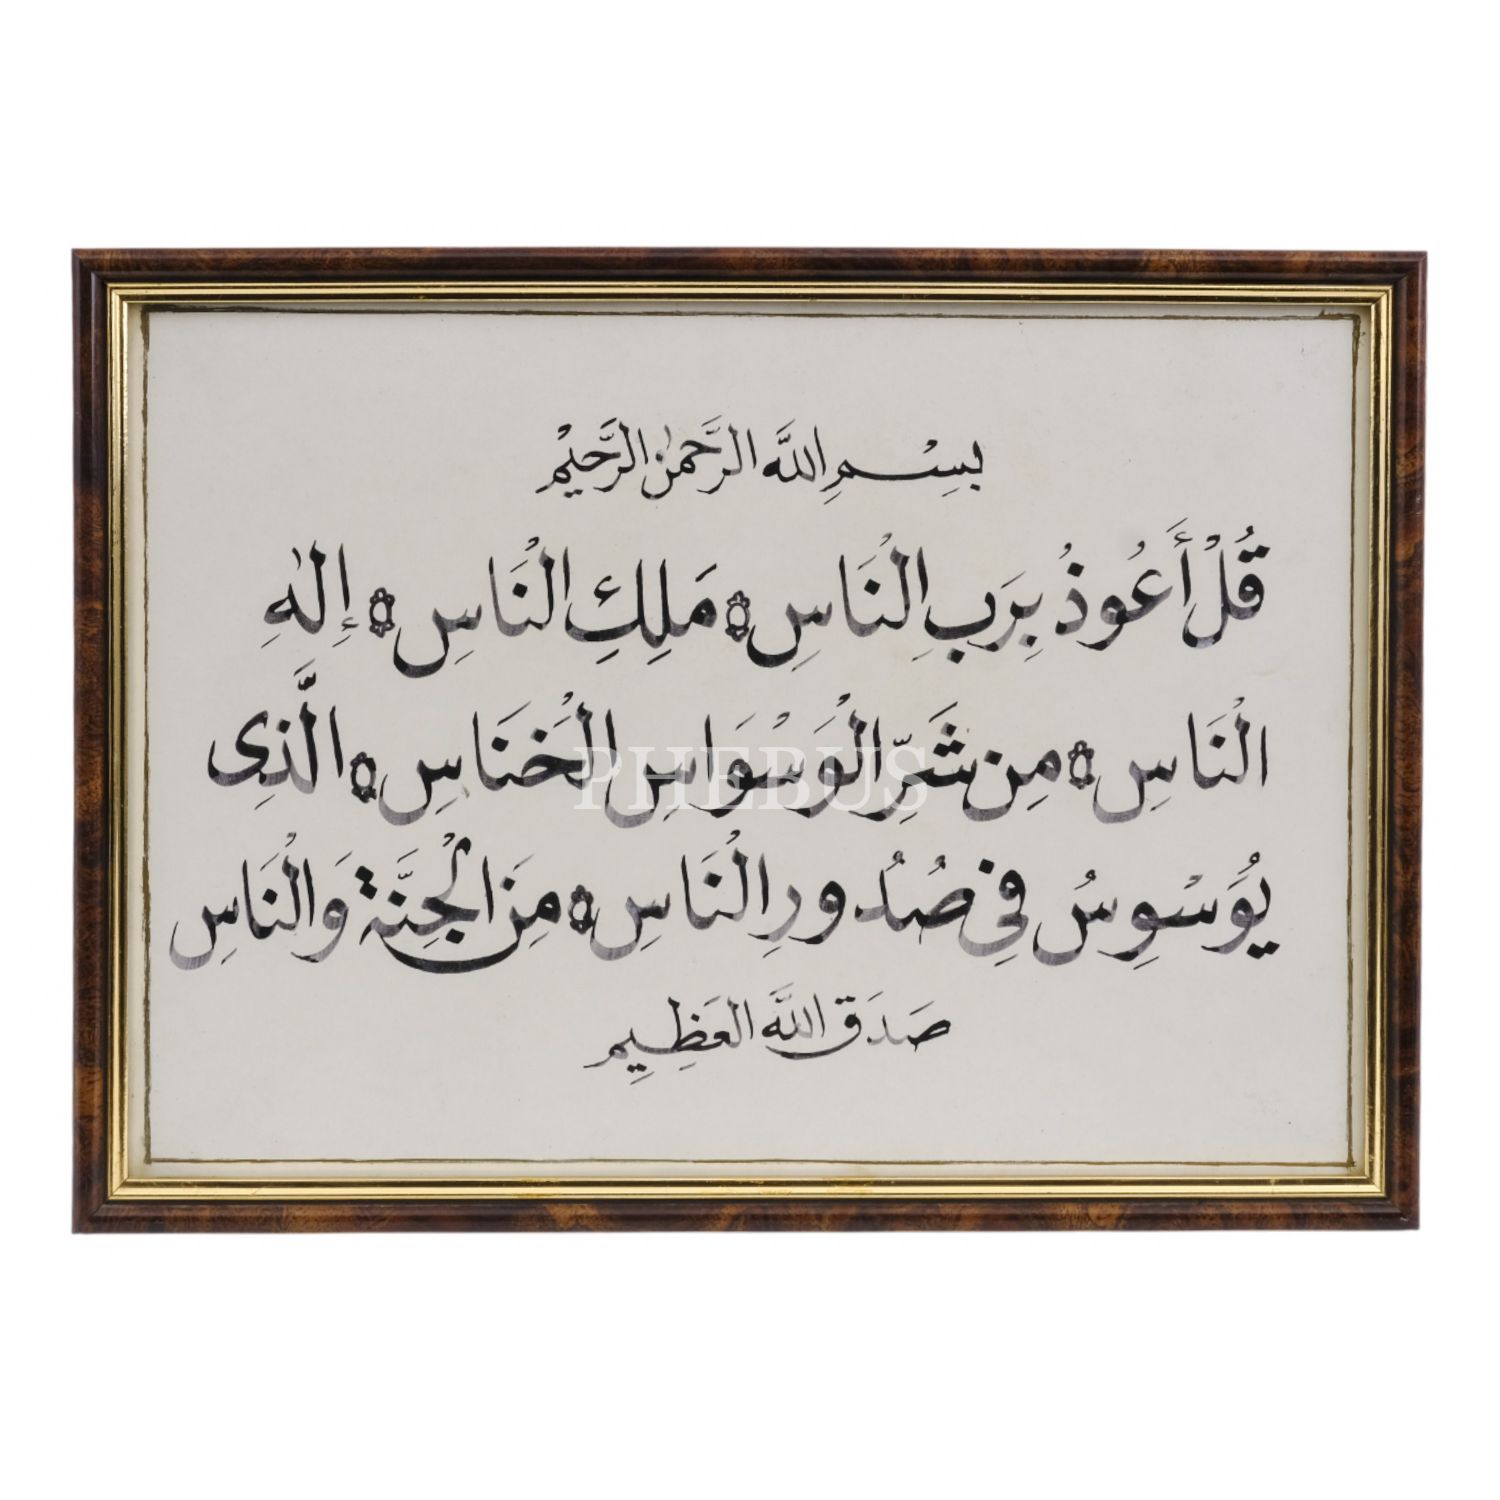 بِسْمِ اللَّهِ الرَّحْمٰنِ الرَّحِيْمِ
قُلْ أَعُوذُ بِرَبِ الْنَاسِ ۝ مَلِكِ الْنَاسِ ۝ إِلٰهِ
الْنَاسِ ۝ مِن شَرِّ الْوَسْوَاسِ الْخَنَاسِ ۝ الَّذِى
يُوَسْوِسُ فِي صُدُورِ الْنَاسِ ۝ مِنَ الْجِنَّةِ وَالْنَاسِ
صَدَقَ اللَّهُ الْعَظِيمِ
PHEBUS